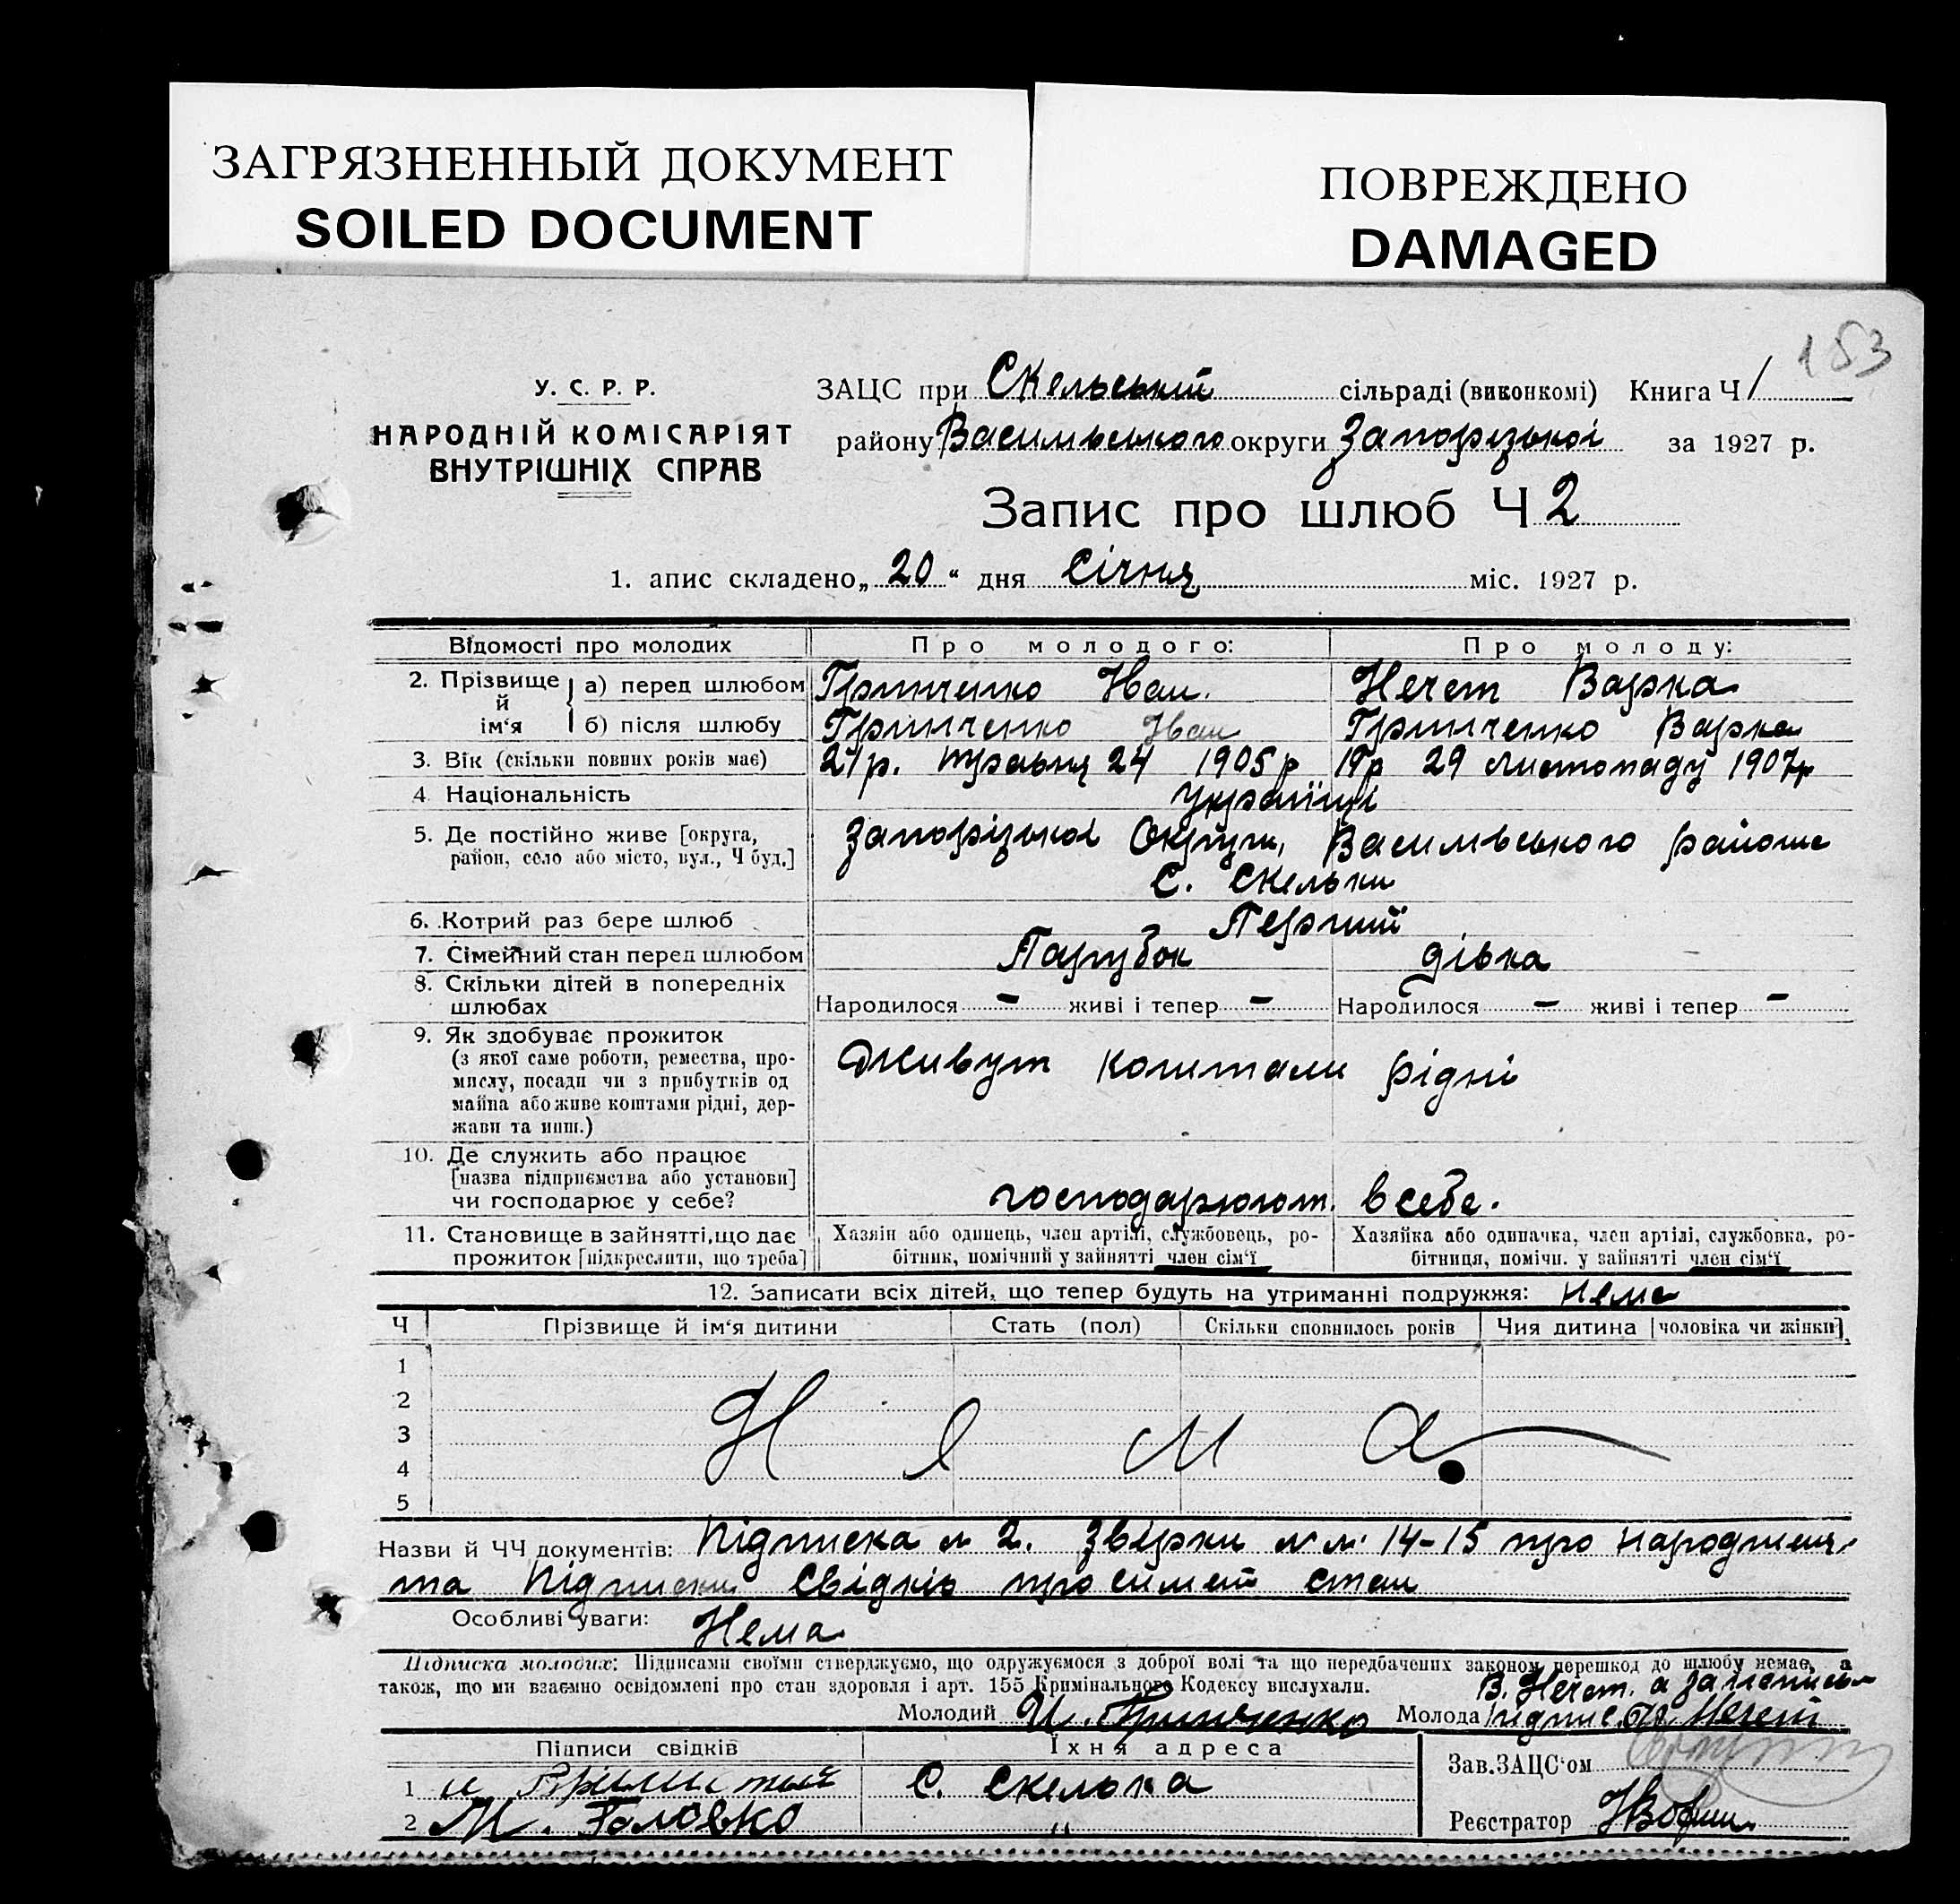 ЗАГРЯЗНЕННЫЙ ДОКУМЕНТ
SOILED DOCUMENT
ПОВРЕЖДЕНО
DAMAGED
153
У. С. Р. Р.
НАРОДНІЙ КОМІСАРІЯТ
ВНУТРІШНІХ СПРАВ
ЗАЦС при Скельський сільраді (виконкомі) Книга Ч 1
району Василівського округи Запорізької за 1927 р.
Запис про шлюб Ч 2
1. апис складено „ 20 “ дня Січня міс. 1927 р.
Відомості про молодих Про молодого: Про молоду:
2. Прізвище й ім‘я а) перед шлюбом Гринченко Иван. Нечет Варка
б) після шлюбу Гринченко Иван Гринченко Варка
3. Вік (скільки повних років має) 21р. травня 24 1905 р 19р 29 листопаду 1907р
4 Національність українці
5. Де постійно живе [округа, район, село або місто, вул., Ч буд.] Запорізької Округи, Василівського району
С. Скельки
6. Котрий раз бере шлюб Перший
7. Сімейний стан перед шлюбом Парубок дівка
8. Скільки дітей в попередніх шлюбах Народилося – живі і тепер – Народилося – живі і тепер –
9. Як здобуває прожиток
(з якої саме роботи, ремества, промислу, посади чи з прибутків од майна або живе коштами рідні, держави та инш.) Живут коштами рідні
10. Де служить або працює
[назва підприємства або установи]
чи господарює у себе? господарюют. в себе.
11. Становище в зайнятті, що дає прожиток [підкреслити, що треба] Хазяїн або одинець, член артілі, службовець, робітник, помічний у зайнятті член сім‘ї Хазяйка або одиначка, член артілі, службовка, робітниця, помічн. у зайнятті член сім‘ї
12. Записати всіх дітей, що тепер будуть на утриманні подружжя: нема
Ч Прізвище й ім‘я дитини Стать (пол) Скільки сповнилось років Чия дитина [чоловіка чи жінки]
1
2
3 Нема
4
5
Назви й ЧЧ документів: Підписка № 2. Звірки №№ 14-15 про народження
та Підписки свідків про сімей стан
Особливі уваги: Нема
Підписка молодих: Підписами своїми стверджуємо, що одружуємося з доброї волі та що передбачених законом перешкод до шлюбу немає, а
також, що ми взаємно освідомлені про стан здоровля і арт. 155 Кримінального Кодексу вислухали.
В. Нечет. а за
Молодий И. Гринченко Молода підпис. Нечет
Підписи свідків Їхня адреса
Зав.ЗАЦС‘ом
1 С. Скелька
2 М. Головко "
Реєстратор